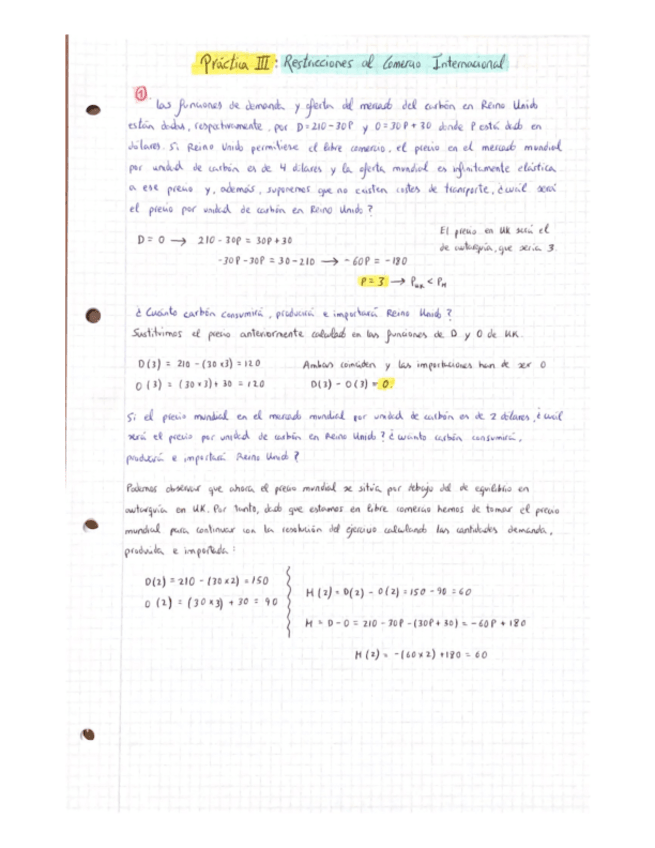 Práctica III: Restricciones al Comercio Internacional
①. Las funciones de demanda y oferta del mercado del carbón en Reino Unido
están dadas, respectivamente, por D=210-30P y O=30P+30 donde P está dado en
dólares. Si Reino Unido permitiese el libre comercio, el precio en el mercado mundial
por unidad de carbón es de 4 dólares y la oferta mundial es infinitamente elástica
a ese precio y, además, suponemos que no existen costes de transporte, ¿cuál será
el precio por unidad de carbón en Reino Unido?
D = O → 210 - 30P = 30P+30
-30P-30P = 30-210 → -60P = -180
P=3 → P_UK < P_M
El precio en UK será el
de autarquía, que sería 3.
¿Cuánto carbón consumirá, producirá e importará Reino Unido?
Sustituimos el precio anteriormente calculado en las funciones de D y O de UK.
D(3) = 210 - (30x3) = 120
O(3) = (30x3) + 30 = 120
Ambas coinciden y las importaciones han de ser 0
D(3) - O(3) = 0.
Si el precio mundial en el mercado mundial por unidad de carbón es de 2 dólares, ¿cuál
será el precio por unidad de carbón en Reino Unido? ¿cuánto carbón consumirá,
producirá e importará Reino Unido?
Podemos observar que ahora el precio mundial se sitúa por debajo del de equilibrio en
autarquía en UK. Por tanto, dado que estamos en libre comercio hemos de tomar el precio
mundial para continuar con la resolución del ejercicio calculando las cantidades demanda,
producida e importada:
D(2) = 210 - (30x2) = 150
O(2) = (30x3) + 30 = 90
M(2) = D(2) - O(2) = 150 - 90 = 60
M = D - O = 210 - 30P - (30P+30) = -60P + 180
M(2) = -(60x2) + 180 = 60